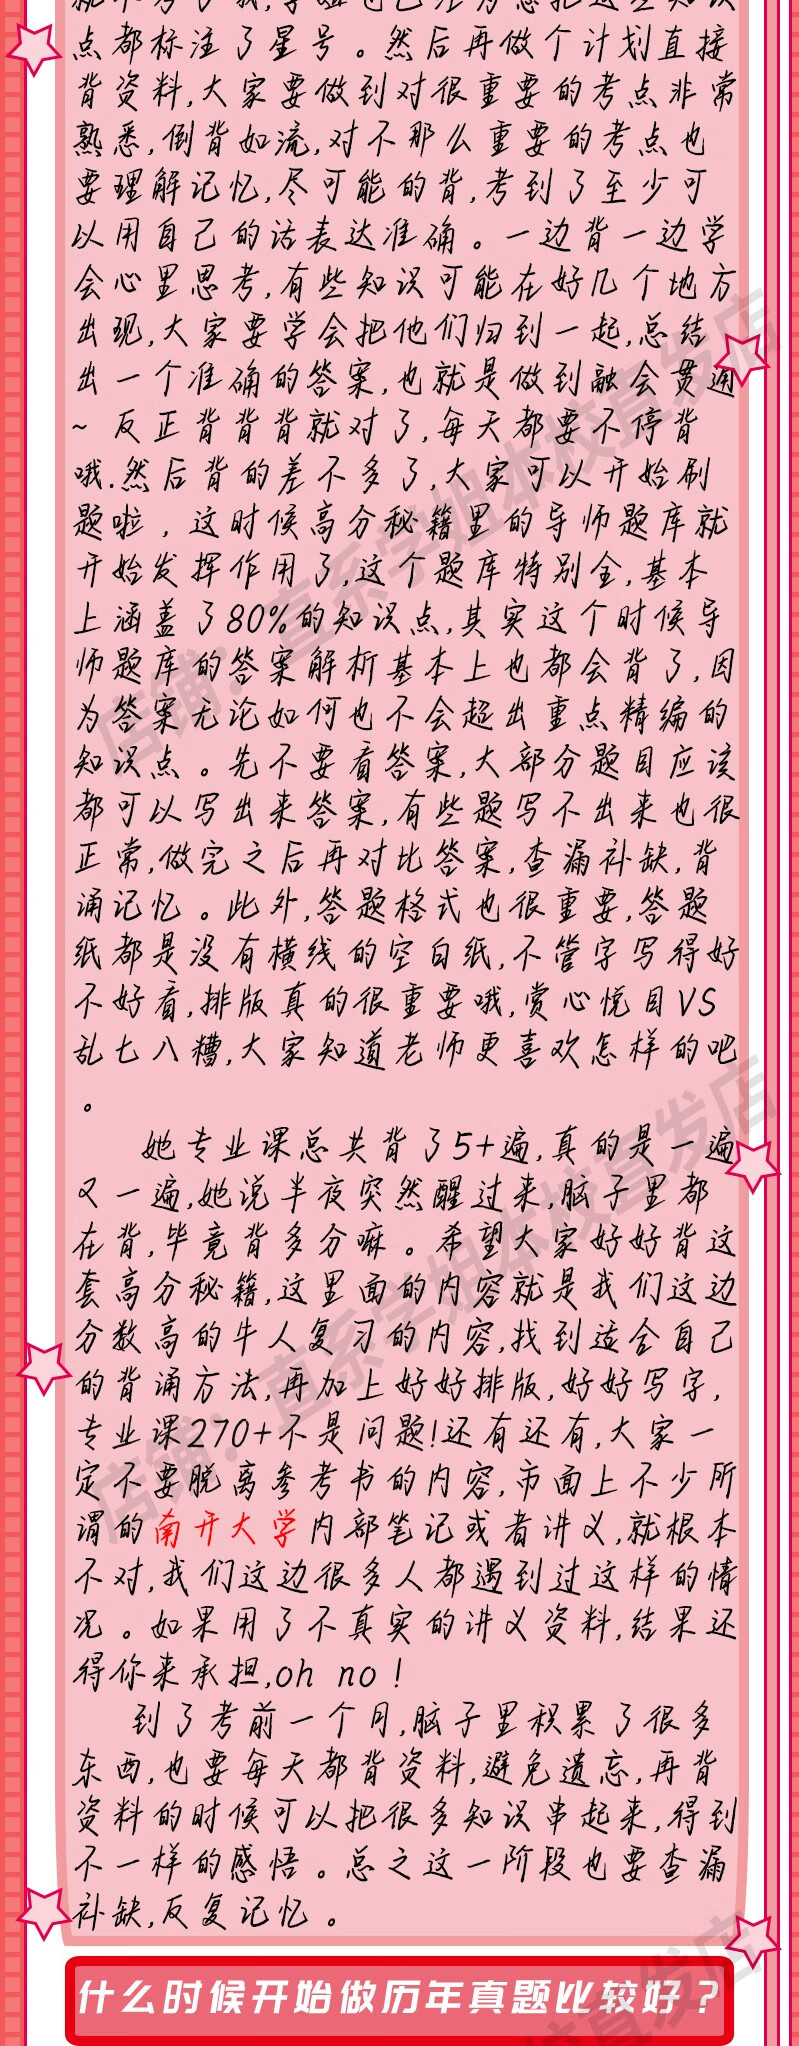 点都标注了星号。然后再做个计划直接
背资料,大家要做到对很重要的考点非常
熟悉,倒背如流,对不那么重要的考点也
要理解记忆,尽可能的背,考到了至少可
以用自己的话表达准确。一边背一边学
会心里思考,有些知识可能在好几个地方
出现,大家要学会把他们归到一起,总结
出一个准确的答案,也就是做到融会贯通
~ 反正背背背就对了,每天都要不停背
哦.然后背的差不多了,大家可以开始刷
题啦，这时候高分秘籍里的导师题库就
开始发挥作用了,这个题库特别全,基本
上涵盖了80%的知识点,其实这个时候导
师题库的答案解析基本上也都会背了,因
为答案无论如何也不会超出重点精编的
知识点。先不要看答案,大部分题目应该
都可以写出来答案,有些题写不出来也很
正常,做完之后再对比答案,查漏补缺,背
诵记忆。此外,答题格式也很重要,答题
纸都是没有横线的空白纸,不管字写得好
不好看,排版真的很重要哦,赏心悦目VS
乱七八糟,大家知道老师更喜欢怎样的吧
。
她专业课总共背了5+遍,真的是一遍
又一遍,她说半夜突然醒过来,脑子里都
在背,毕竟背多分嘛。希望大家好好背这
套高分秘籍,这里面的内容就是我们这边
分数高的牛人复习的内容,找到适合自己
的背诵方法,再加上好好排版,好好写字,
专业课270+不是问题!还有还有,大家一
定不要脱离参考书的内容,市面上不少所
谓的南开大学内部笔记或者讲义,就根本
不对,我们这边很多人都遇到过这样的情
况。如果用了不真实的讲义资料,结果还
得你来承担,oh no！
到了考前一个月,脑子里积累了很多
东西,也要每天都背资料,避免遗忘,再背
资料的时候可以把很多知识串起来,得到
不一样的感悟。总之这一阶段也要查漏
补缺,反复记忆。
什么时候开始做历年真题比较好？
店铺：直系学姐本校直发店
店铺：直系学姐本校直发店